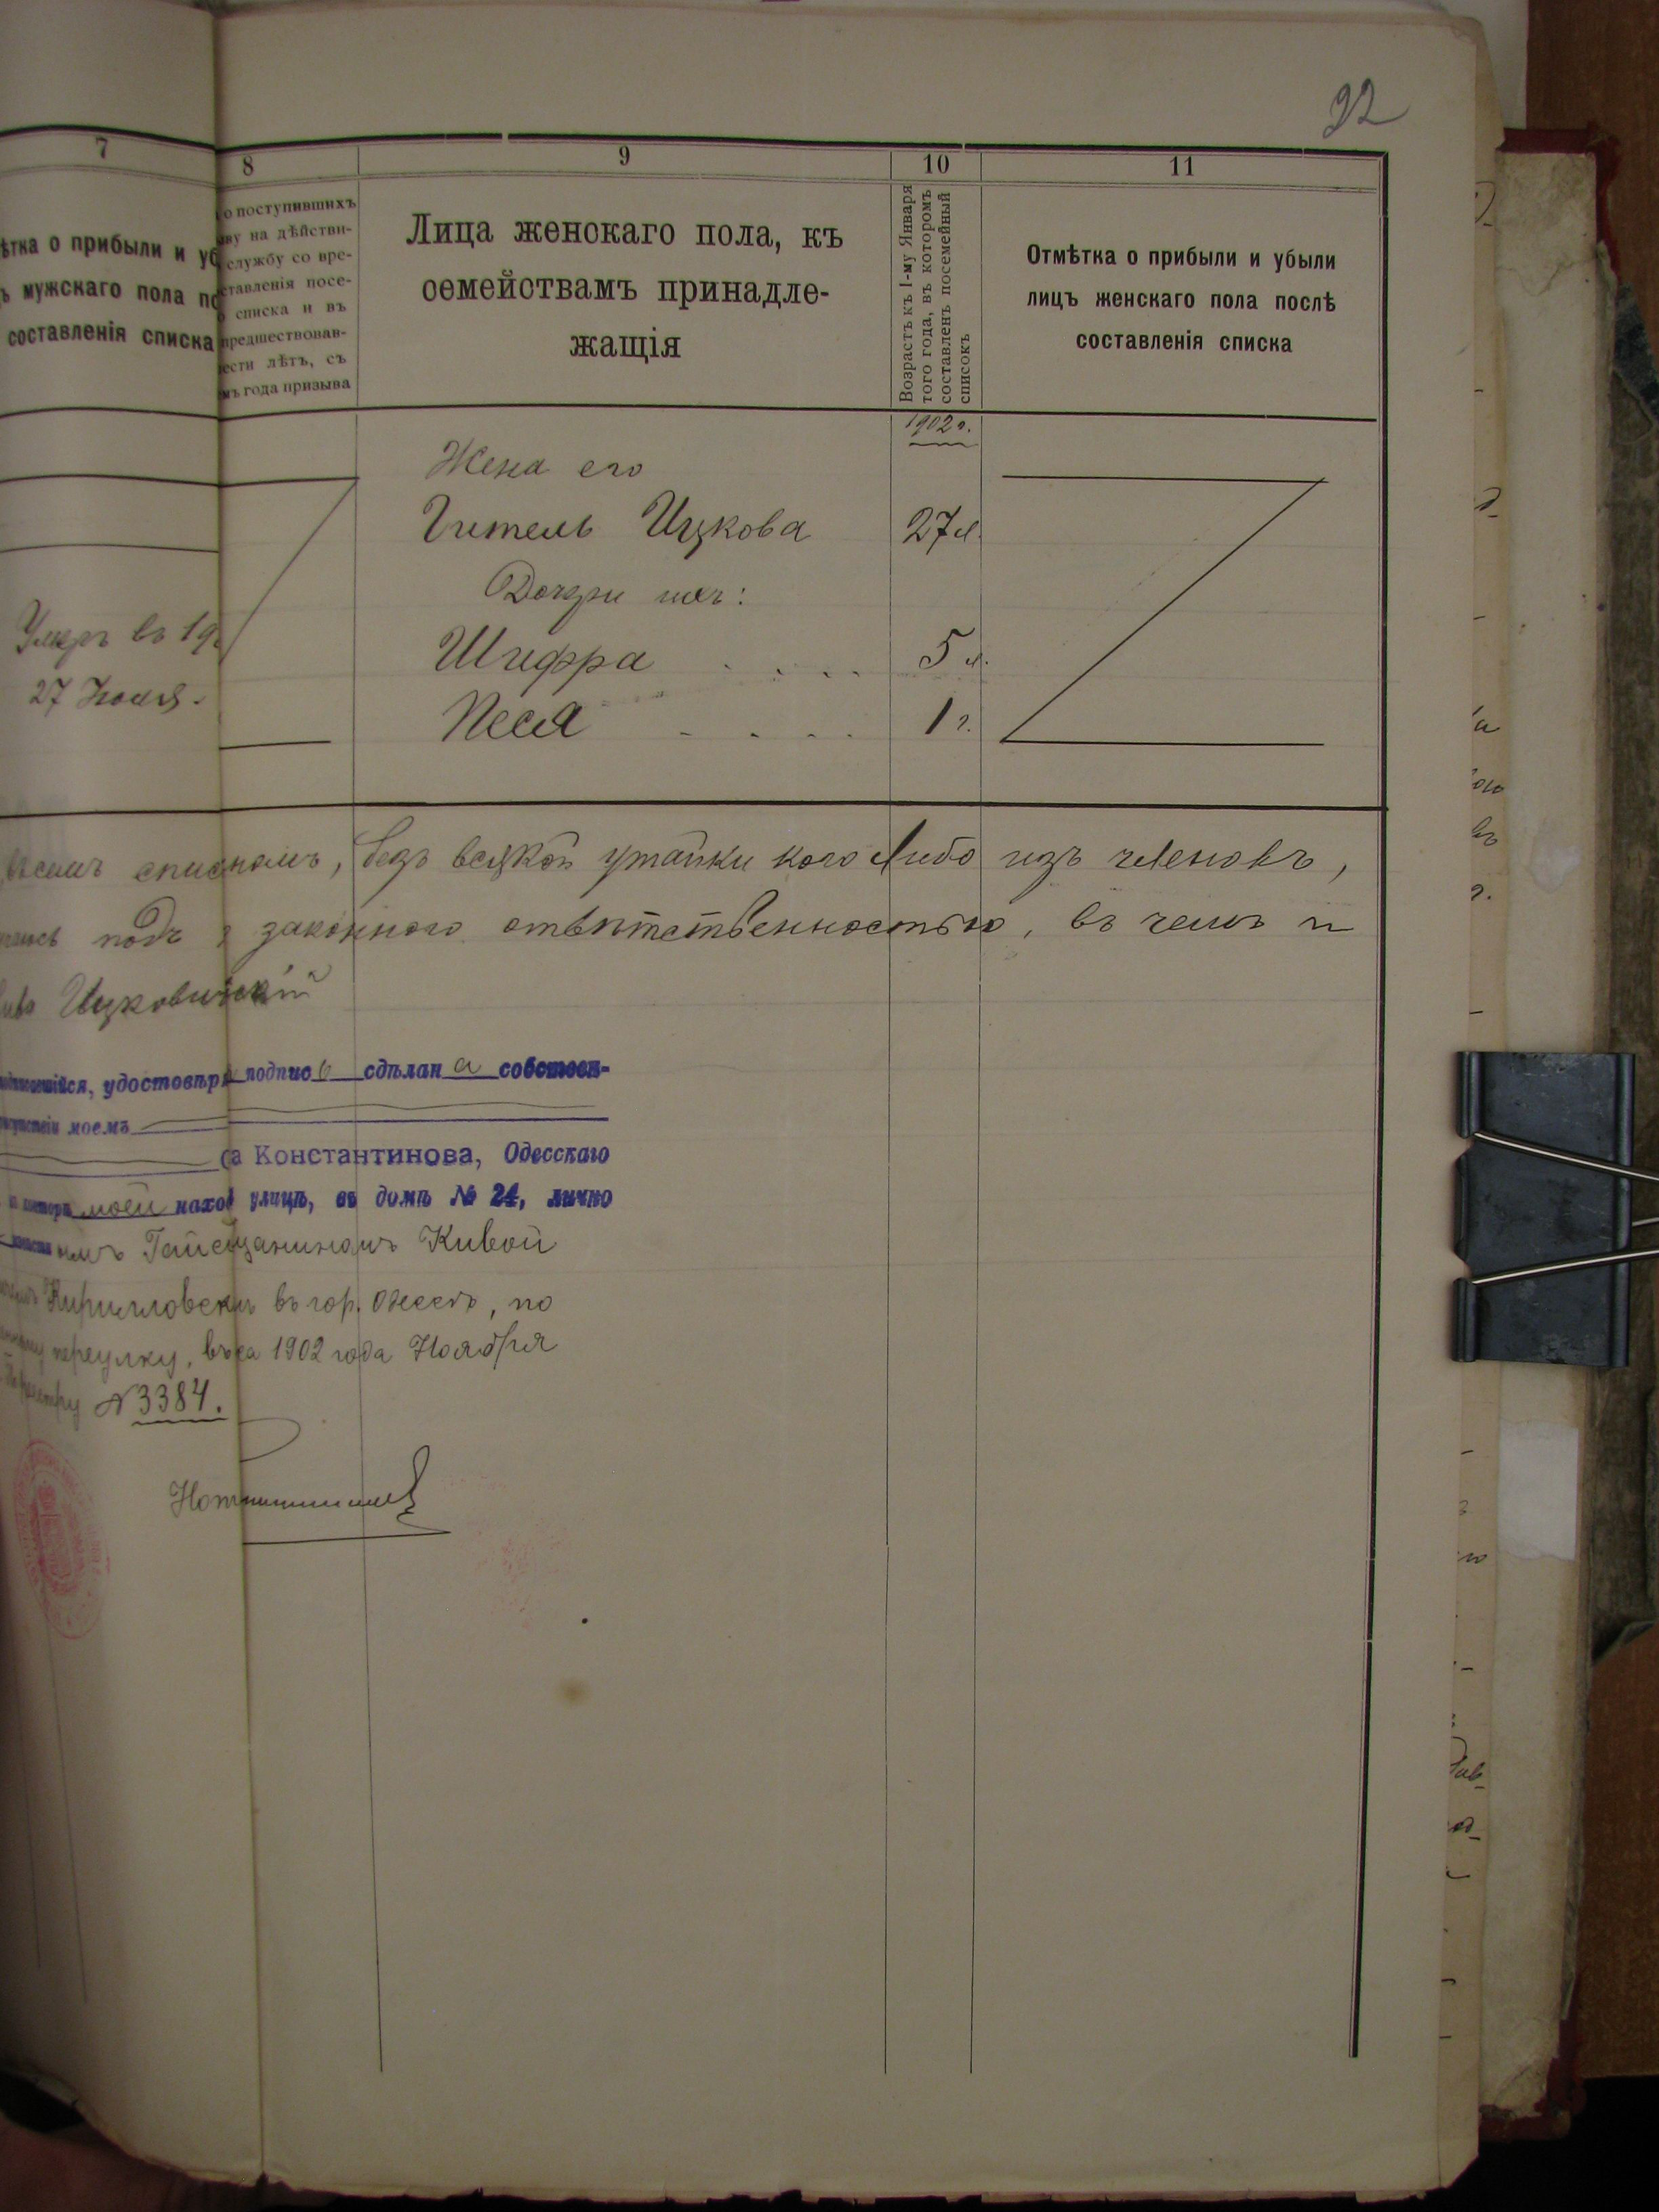 92
7
8
9
10
11
ѣтка о прибыли и уб
ъ мужскаго пола по
составленія списка
о поступившихъ
ву на дѣйстви-
службу со вре-
ставленія посе-
списка и въ
предшествовав-
ести лѣтъ, съ
мъ года призыва
Лица женскаго пола, къ
семействамъ принадле-
жащія
Возрастъ къ 1-му Января
того года, въ которомъ
составленъ посемейный
списокъ
Отмѣтка о прибыли и убыли
лицъ женскаго пола послѣ
составленія списка
1902 г.
Жена его
Гитель Ицкова 27 л.
Дочери ихъ:
Умеръ въ 19
Шифра . . . . 5 л.
27 Іюля.
Песя . . . . 1 г.
спискомъ, безъ всякой утайки кого либо изъ членовъ,
подъ законного отвѣтственностью, въ чемъ и
Ицковичскій
удостовѣр подпись сдѣлана собствен-
моемъ
Константинова, Одесскаго
моей наход улицѣ, въ домѣ № 24, лично
Гайсщаниномъ Кивой
въ гор. Одессѣ, по
переулку, 1902 года Ноября
№ 3384.